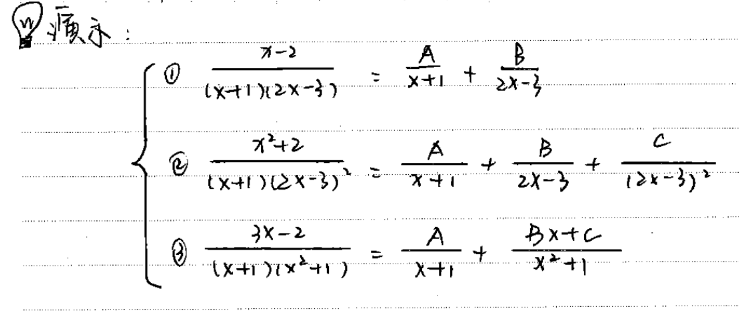 演示:
① (x-2)/((x+1)(2x-3)) = A/(x+1) + B/(2x-3)
② (x²+2)/((x+1)(2x-3)²) = A/(x+1) + B/(2x-3) + C/(2x-3)²
③ (3x-2)/((x+1)(x²+1)) = A/(x+1) + (Bx+C)/(x²+1)